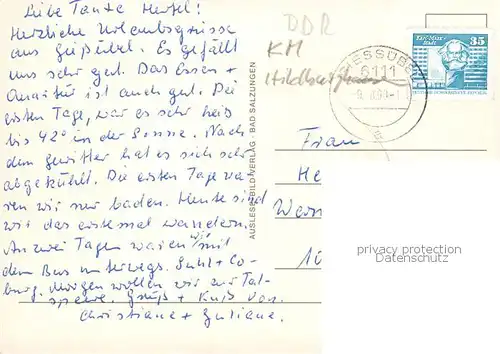 Liebe Tante Hertel!
Herzliche Urlaubsgrüsse
aus Gießübel. Es gefällt
uns sehr gut. Das Essen +
Quartier ist auch gut. Die
ersten Tage, war es sehr heiß
bis 42° in der Sonne. Nach
dem Gewitter hat es sich sehr
abgekühlt. Die ersten Tage wa-
ren wir nur baden. Heute sind
wir das erstemal wandern.
An zwei Tagen waren wir mit
dem Bus unterwegs. Suhl + Co-
burg. Morgen wollen wir zur Tal-
sperre. Gruß + Kuß von
Christiane + Juliane.
AUSLESE-BILD-VERLAG · BAD SALZUNGEN
DDR
KM
Hildburghausen
GIESSÜBEL
6111
a
35
Karl-Marx-
Stadt
DEUTSCHE DEMOKRATISCHE REPUBLIK
Frau
He
privacy protection
Datenschutz